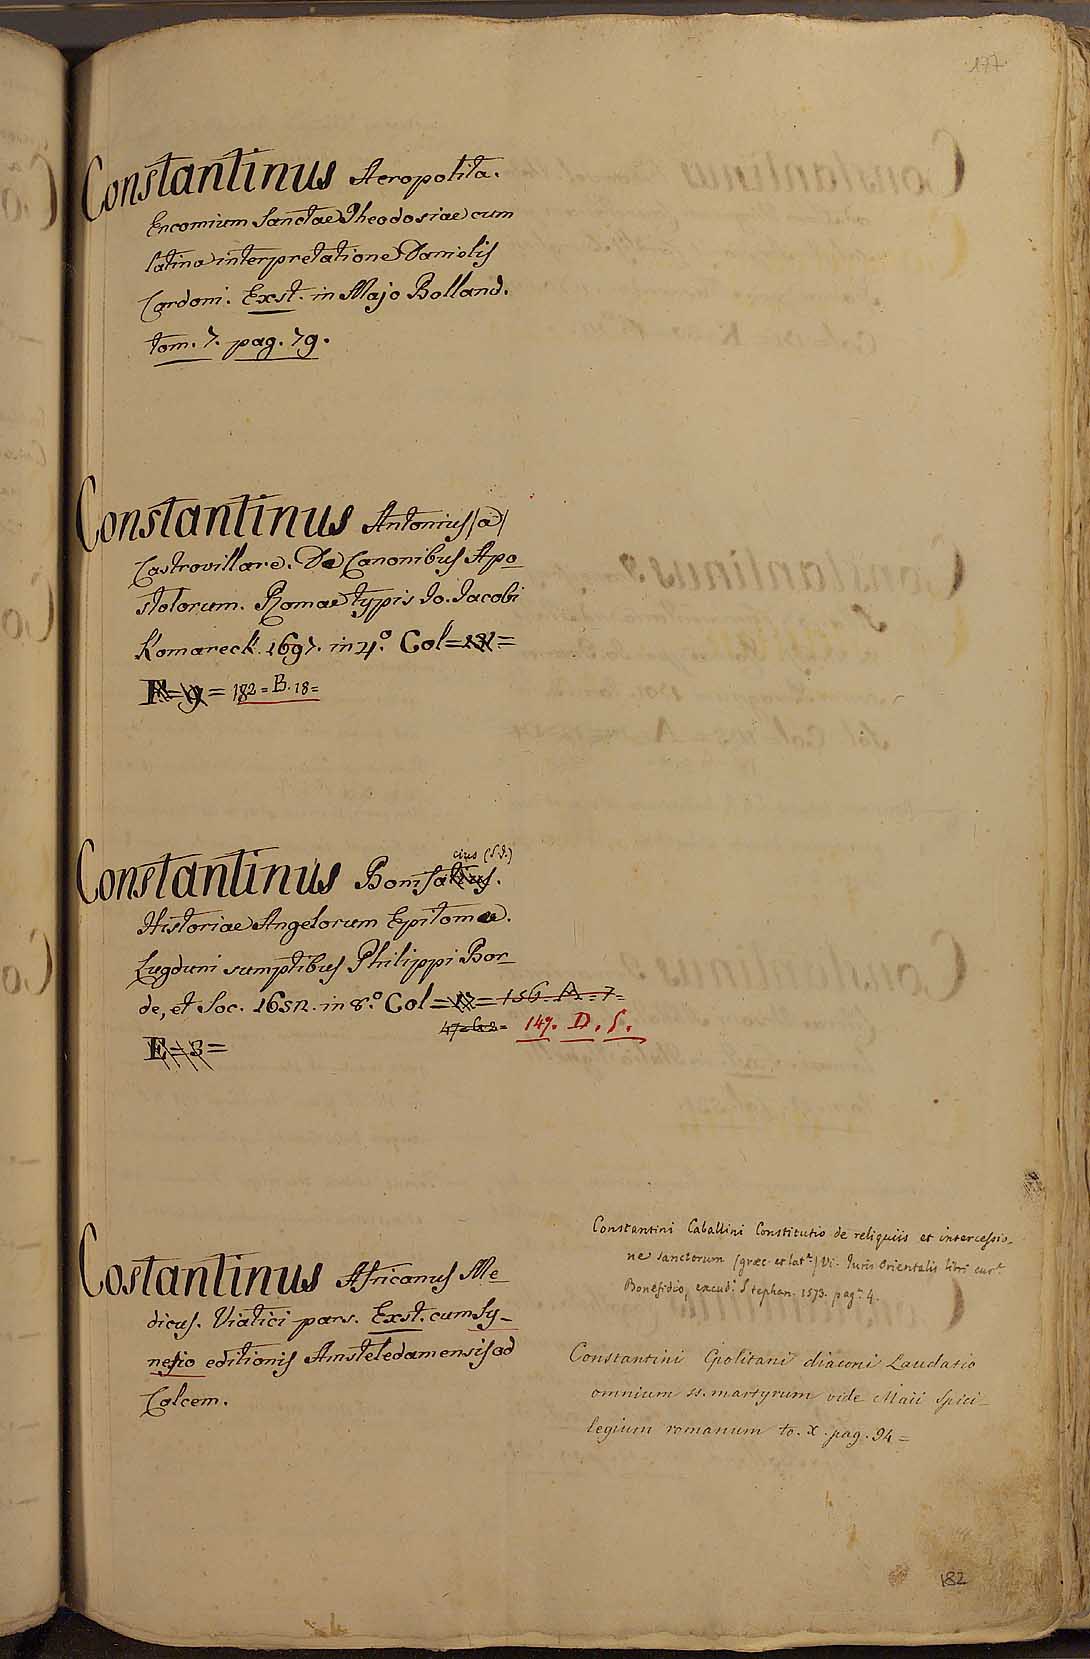 177
Constantinus Acropolita.
Encomium Sanctae Theodosiae cum
latina interpretatione Danielis
Cardoni. Exst. in Majo Bolland.
tom. 7. pag. 79.
Constantinus Antonius (a)
Castrovillare. De Canonibus Apo
stolorum. Romae typis Jo. Jacobi
Komareck. 1697. in 4.° Col=131=
F=9= 182=B.18=
cius (S.J.)
Constantinus Bonifatius.
Historiae Angelorum Epitomae.
Lugduni sumptibus Philippi Bor
de, et Soc. 1652. in 8.° Col=17= 156. A=7=
47=G2= 149. D. S.
E=3=
Costantinus Africanus Me
dicus. Viatici pars. Exst. cum Sy-
nesio editionis Amsteledamensis ad
Calcem.
Constantini Caballini Constitutio de reliquiis et intercessio-
ne sanctorum (graec. et lat.e) Vi. Juris Orientalis libri cur.t
Bonefidio, excud. Stephan. 1573. pag.e 4.
Constantini Cpolitani diaconi Laudatio
omnium ss. martyrum vide Maii Spici-
legium romanum to. X. pag. 94=
182